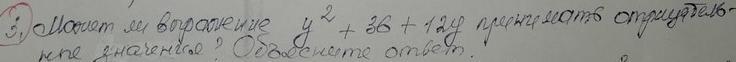 3. Может ли выражение y² + 36 + 12y принимать отрицатель-
ные значения? Объясните ответ.